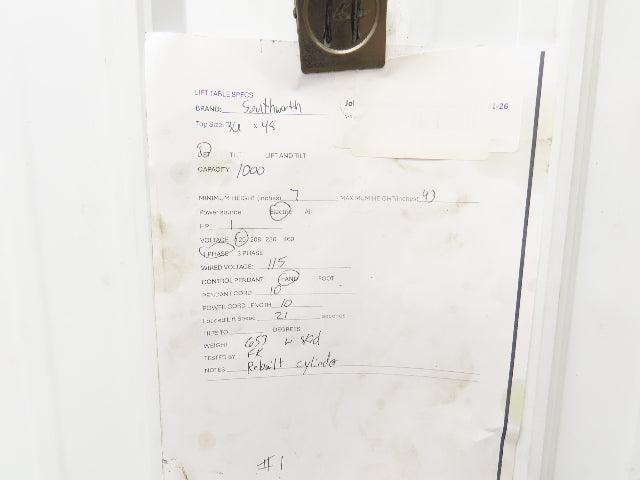 LIFT TABLE SPECS
BRAND: Southworth
Jol
L-26
Top Size: 36 x 48
TILT LIFT AND TILT
CAPACITY 1000
MINIMUM HEIGHT (inches) 7 MAXIMUM HEIGHT (inches)
Power source Electric Air
HP 1
VOLTAGE 120 208 230 460
1 PHASE 3 PHASE
WIRED VOLTAGE: 115
CONTROL PENDANT HAND FOOT
PENDANT CORD 10
POWER CORD LENGTH 10
Loaded Lift Speed 21 seconds
TILTS TO DEGREES
WEIGHT 657 w skid
TESTED BY FK
NOTES Rebuilt cylinder
#1